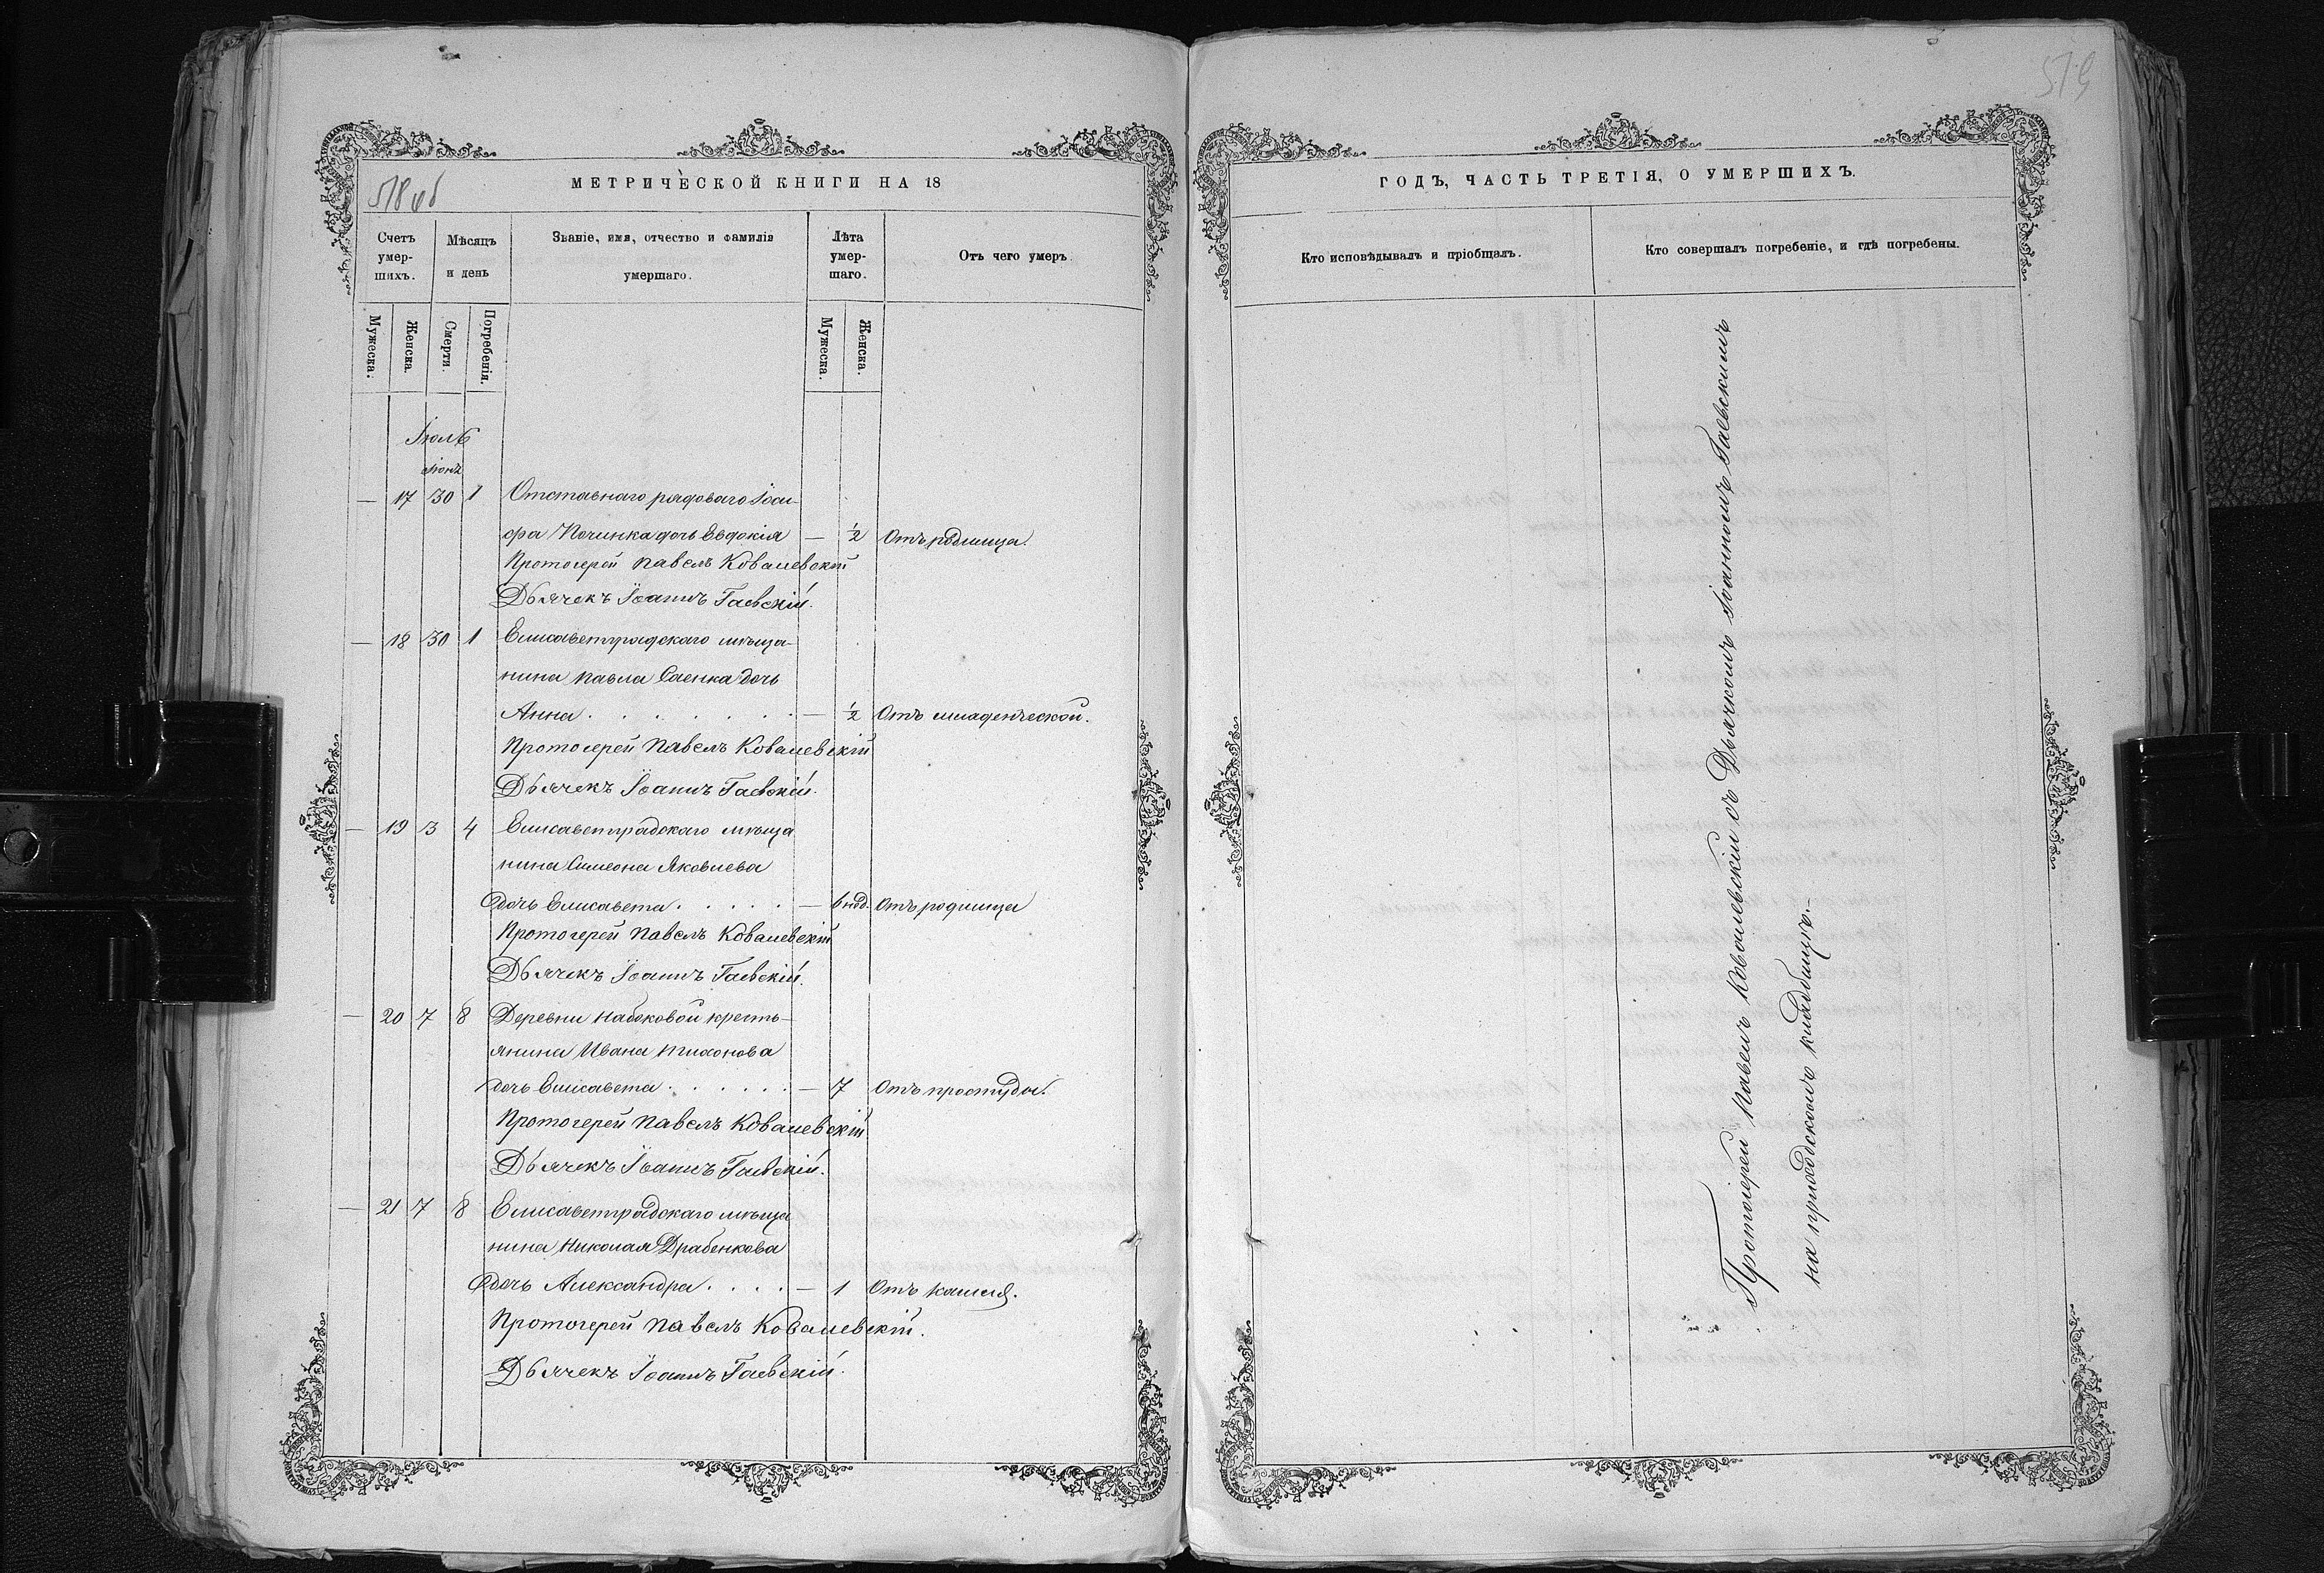 518 об
МЕТРИЧЕСКОЙ КНИГИ НА 18
Счетъ умер-шихъ.
Мѣсяцъ и день
Званіе, имя, отчество и фамилія умершаго.
Лѣта умер-шаго.
Отъ чего умеръ
Мужеска.
Женска.
Смерти.
Погребенія.
Мужеска.
Женска.
Іюль
Іюня
— 17 30 1 Отставнаго рядоваго Іоси-
фа Починка дочь Евдокія — ½ Отъ родимца.
Протоіерей Павелъ Ковалевскій
Дьячекъ Іоаннъ Гаевскій.
— 18 30 1 Елисаветградскаго мѣща-
нина Павла Саенка дочь
Анна . . . . . . . — ½ Отъ младенческой.
Протоіерей Павелъ Ковалевскій
Дьячекъ Іоаннъ Гаевскій.
— 19 3 4 Елисаветградскаго мѣща
нина Симеона Яковлева
дочь Елисавета . . . . . — 6 нед. Отъ родимца
Протоіерей Павелъ Ковалевскій
Дьячекъ Іоаннъ Гаевскій.
— 20 7 8 Деревни Набоковой кресть-
янина Ивана Тихонова
дочь Елисавета . . . . . . — 7 Отъ простуды.
Протоіерей Павелъ Ковалевскій
Дьячекъ Іоаннъ Гаевскій.
— 21 7 8 Елисаветградскаго мѣща
нина Николая Драбенкова
дочь Александра . . . . — 1 Отъ кашля.
Протоіерей Павелъ Ковалевскій.
Дьячекъ Іоаннъ Гаевскій.
519
ГОДЪ, ЧАСТЬ ТРЕТІЯ, О УМЕРШИХЪ.
Кто исповѣдывалъ и пріобщалъ.
Кто совершалъ погребеніе, и гдѣ погребены.
Протоіерей Павелъ Ковалевскій съ Дьячкомъ Іоанномъ Гаевскимъ
на приходскомъ кладбищѣ.—